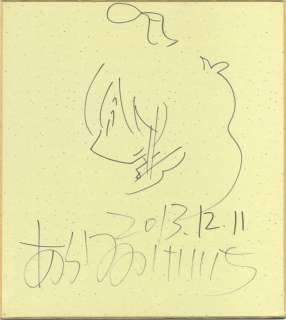 2013.12.11
あらゐけいいち